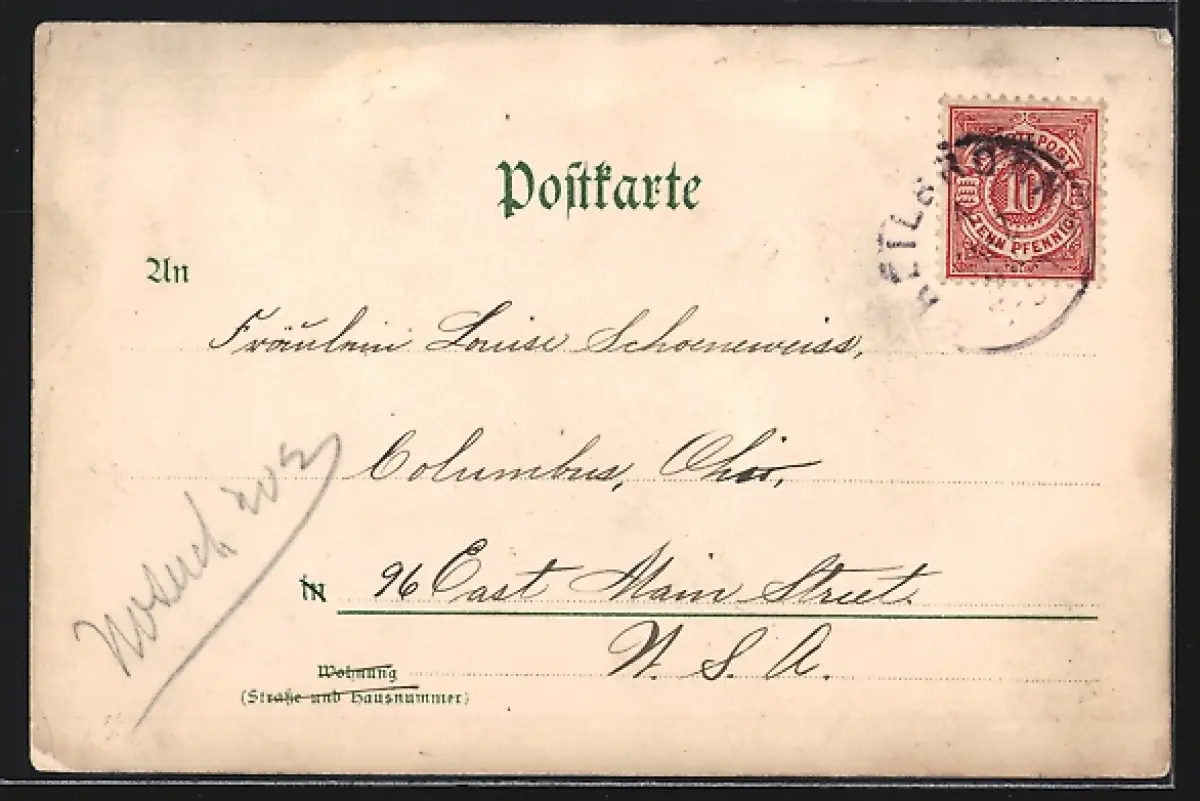 Postkarte
An
HEILBRONN
WÜRTT. POST
10
ZEHN PFENNIG
Fräulein Louise Schoeneweiss,
Columbus, Ohio,
in 96 East Main Street.
U. S. A.
Wohnung
(Straße und Hausnummer)